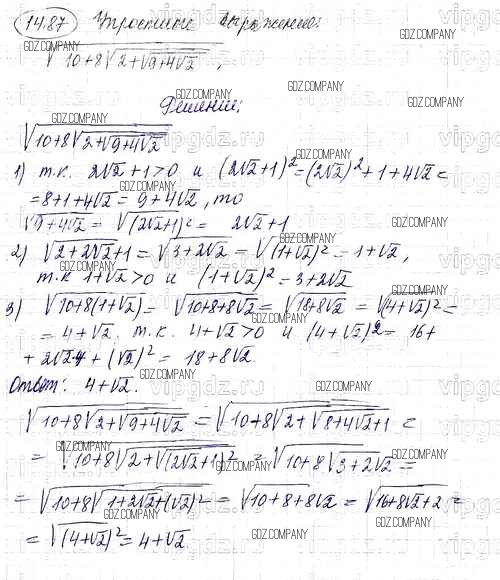 14.87 Упростите выражение:
√(10+8√(2+√(9+4√2))),
Решение:
√(10+8√(2+√(9+4√2)))
1) т.к. 2√2+1>0 и (2√2+1)²=(2√2)²+1+4√2=
=8+1+4√2=9+4√2, то
√(9+4√2)=√((2√2+1)²)=2√2+1
2) √(2+2√2+1)=√(3+2√2)=√((1+√2)²)=1+√2,
т.к 1+√2>0 и (1+√2)²=3+2√2
3) √(10+8(1+√2))=√(10+8+8√2)=√(18+8√2)=√((4+√2)²)=
=4+√2. т.к. 4+√2>0 и (4+√2)²=16+
+2√2·4+(√2)²=18+8√2.
Ответ: 4+√2.
√(10+8√(2+√(9+4√2)))=√(10+8√(2+√(8+4√2+1)))=
=√(10+8√(2+√((2√2+1)²)))=√(10+8√(3+2√2))=
=√(10+8√(1+2√2+(√2)²))=√(10+8+8√2)=√(16+8√2+2)=
=√((4+√2)²)=4+√2.